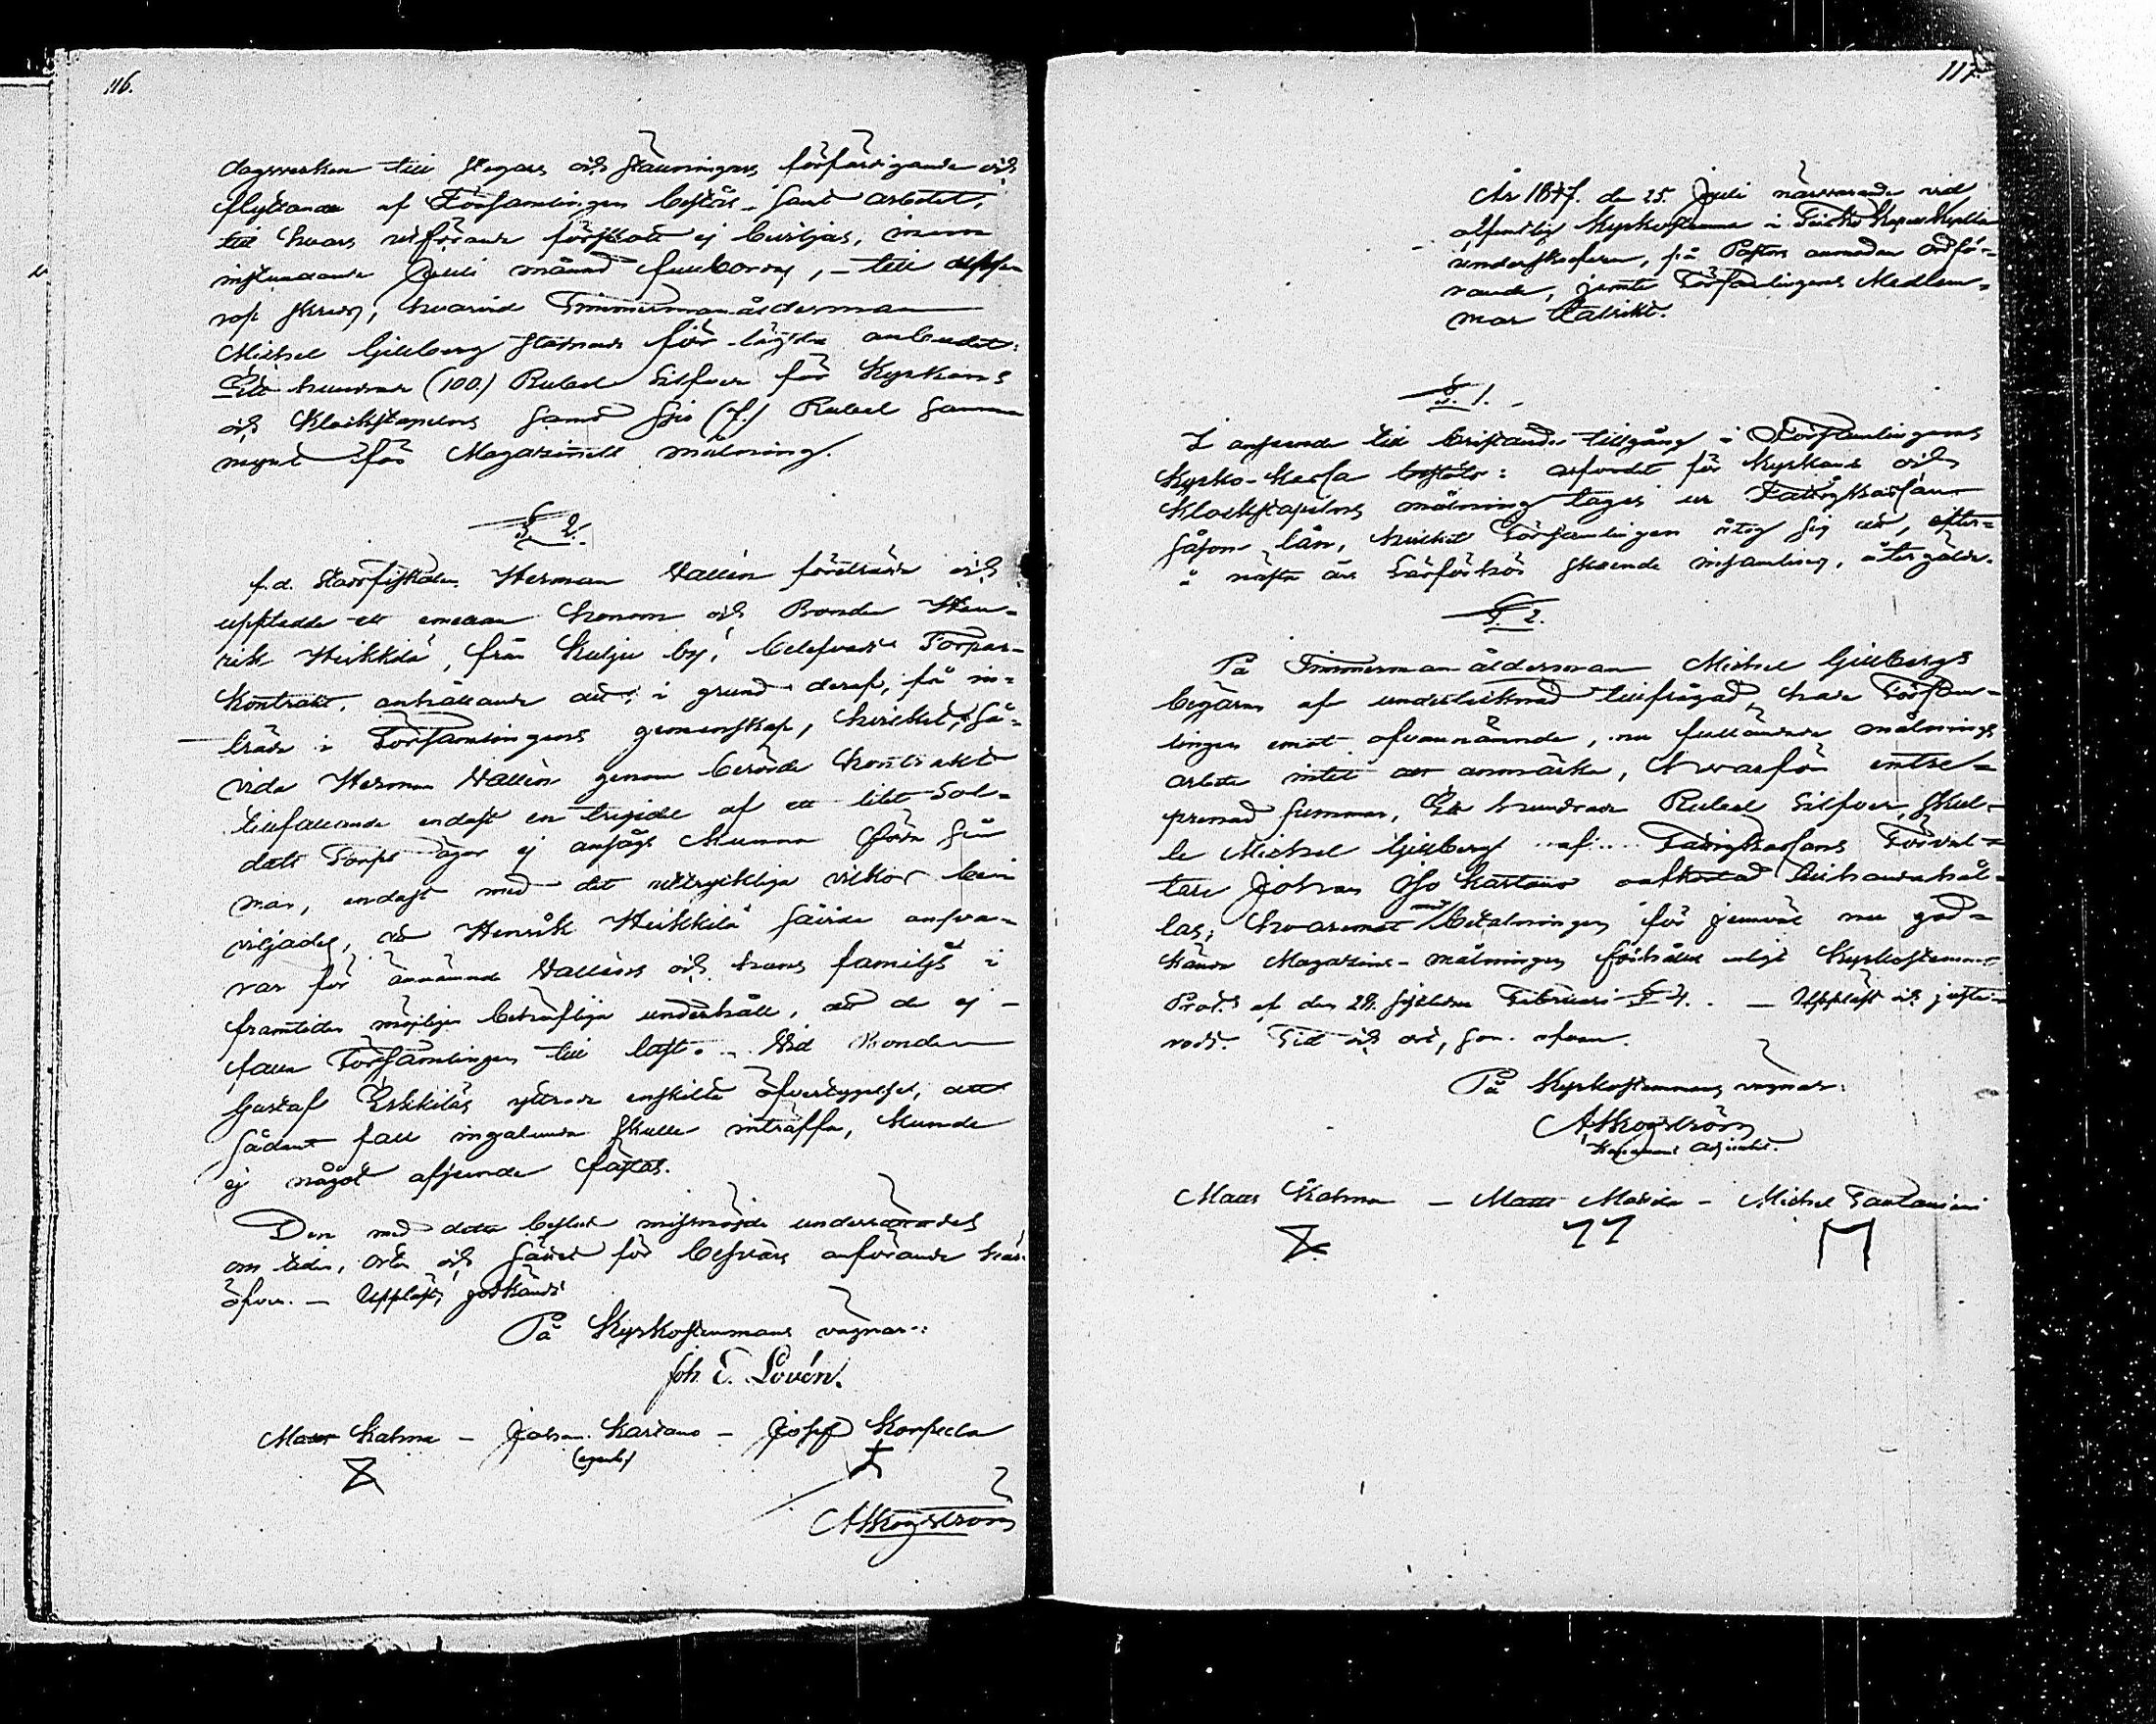 116.
dagsverken till stegars och ställningars förfärdigande och
flyttande af Församlingen bestås, samt arbetet,
till hvars utförande förskott ej beviljas, inom
instundande Juli månad fullbordas, – till
rop skreds, hvarvid Timmermanålderman
Michel Gillberg stadnade för lägsta anbudet:
Ett hundrade (100.) Rubel Silfver för Kyrkans
och Klockstapelns samt sju (7.) Rubel samma
mynt för Magazinets målning.
§. 2.
f.d. Stadsfiskalen Herman Vallén företrädde och
uppteedde ett emellan honom och Bonden Hen-
rik Heikkilä, från Kulju by, belefvadt Torpar-
kontrakt, anhållande att, i grund deraf, få in-
träda i Församlingens gemenskap, hvilket, så-
vida Herman Vallén genom berörde kontrakt
tillfallande endast en tredjedel af ett litet Sol-
dats Torp äger ej ansågs kunna föda sin
man, endast med det uttryckliga vilkor bevi-
viljades, att Henrik Heikkilä skulle ansva-
rar för ännämnd Valléns och hans familjs i
framtiden möjligen behöfliga underhåll, att de ej
falla Församlingen till last. Vid Bonden
Gustaf Eskkiläs yttrade enskilta öfvertygelse, att
sådant fall ingalunda skulle inträffa, kunde
ej något afseende fästas.
Den med detta beslut missnöjde underrättades
om tiden, orten och sättet för besvärs anförande här-
öfver. – Uppläst, godkändt
På Kyrkostemmans vägnar:
Joh. E. Lovén.
Matts Kahma – Johan Kartano – Josef Korpela
(egenh)
A Skogström
117.
År 1847. den 25. Juli närvarande vid
offentlig Kyrkostemma i Kapell Kyrka
undertecknad, på Pastors anmodan Ordfö-
rande, jemte Församlingens Medlem-
mar talrikt.
§. 1.
I anseende till bristande tillgång i Församlingens
Kyrko-Kassa arfvodet för kyrkans och
Klockstapelns målning tages ur Fattigkassan
såsom lån, hvilket Församlingen åtog sig att, efter
i nästa år skeende insamling, återgälda.
§. 2.
På Timmermanålderman Michel Gillbergs
begäran af undertecknad tillfrågad, hade Försam-
lingen emot ofvannämnde, nu fulländade målnings
arbete intet att anmärka, hvarföre entre-
prenad summan, Ett hundrade Rubel Silfver, skul-
le Michel Gillberg af Fattigkassans Förval-
tare Johan Iso Kartano oafkortad tillhandahål-
las; hvaremot med betalningen för jemväl nu god-
kända Magazins-målningen förhålles enligt Kyrkostemmo
Prot. af den 28. sistledne Februari §. 4. – Uppläst och juste-
radt. Tid och ort, som ofvan.
På Kyrkostemmans vägnar:
A Skogström
Kapellans Adjunkt.
Matts Kahma – Matts Mattila – Michel Tantaniini